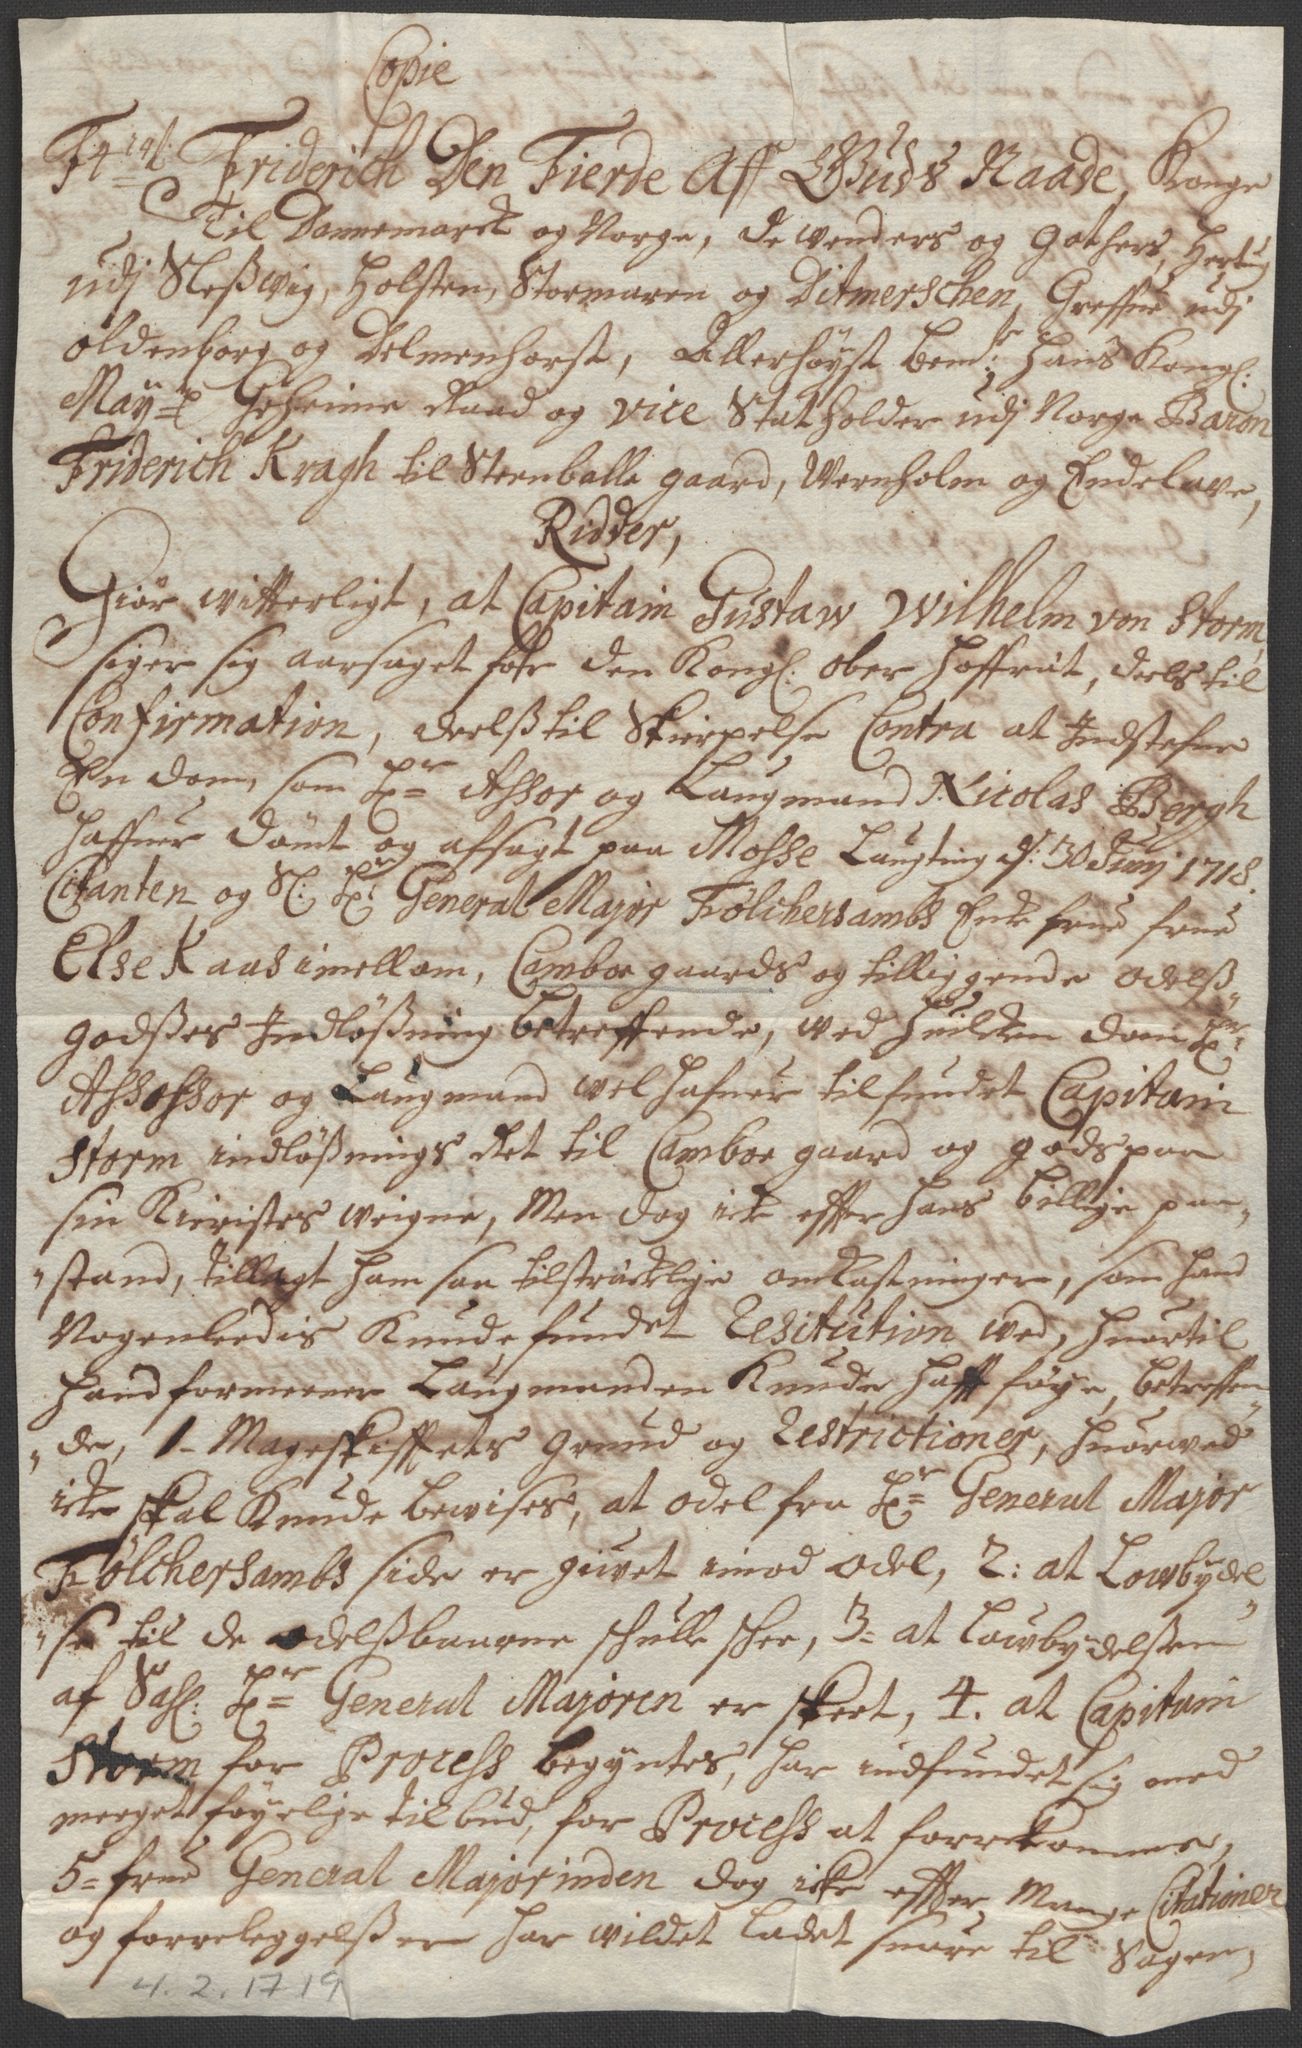 Copie
F4 Friderich Den Fierde Aff Guds Naade, Konge
Til Dannemarck og Norge, de wenders og Gothers, Hertug
udj Sleßwig, Holsten, Stormaren og Ditmerschen, Greffue udj
oldenborg og Delmenhorst, Allerhøyst bemte: Hans Kongl:
May=tz Geheime Raad og vice Statholder udj Norge Baron
Friderich Kragh til Steenballe gaard, Wernholm og Endelave,
Ridder,
Giør witterligt, at Capitain Gustaw Wilhelm von Storm,
siger sig aarsaget for den Kongl: ober Hoffret, deels til
Confirmation, deelß til Skierpelse Contra at Indstefne
En dom, som Hr= Assor og Laugmand Nicolas Bergh
haffuer dømt og afsagt paa Mosse Laugting d: 30 Junj 1718.
Citanten og Sl: Hr: General Major Fölchersambs Enke frue frue
Else Kaas imellom, Camboe gaards og tilliggende odelß
godses Indlößning betreffende, wed huilcken dom Hr:
Assessor og Laugmand wel hafuer tilfundet Capitain
Storm indlößnings Ret til Camboe gaard og gods paa
sin Kieristes weigne, Men dog icke effter hans billige paa„
„stand, tillagt ham saa tilstræcklige omkostninger, som hand
Nogenleedis Kunde fundet Restitution wed, huortil
hand formeener Laugmanden Kunde hafft føye, betreffen„
„de, 1- Mageskifftets grund og Restrictioner, huorwed
icke skal Kunde bewises, at odel fra Hr= General Major
Fölchersambs side er giwet imod odel, 2: at Lowbydel„
„se til de odelßbaarne schulle schee, 3= at Lowbydelßen
af Sahl: Hr= General Majoren er skeet, 4. at Capitain
Storm for Process begyntes, har indfundet sig med
meeget føyelige tilbud, for Process at forrekomme,
5= frue General Majorinden dog icke effter mange Citationer
og forreleggelßer har wildet ladet suare til Sagen,
4. 2. 1719